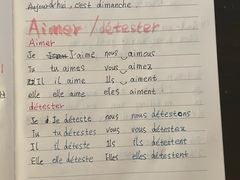 Aujourd'hui, c'est dimanche.
Aimer / détester
Aimer
Je J'aime nous aimous
Tu tu aimes vous aimez
Il il aime Ils aiment
elle elle aime eles aiment
détester
Je Je déteste nous nous détestons
Tu tu détestes vous vous détestex
Il il déteste Ils ils détestent
Elle elle déteste Elles elles détestent